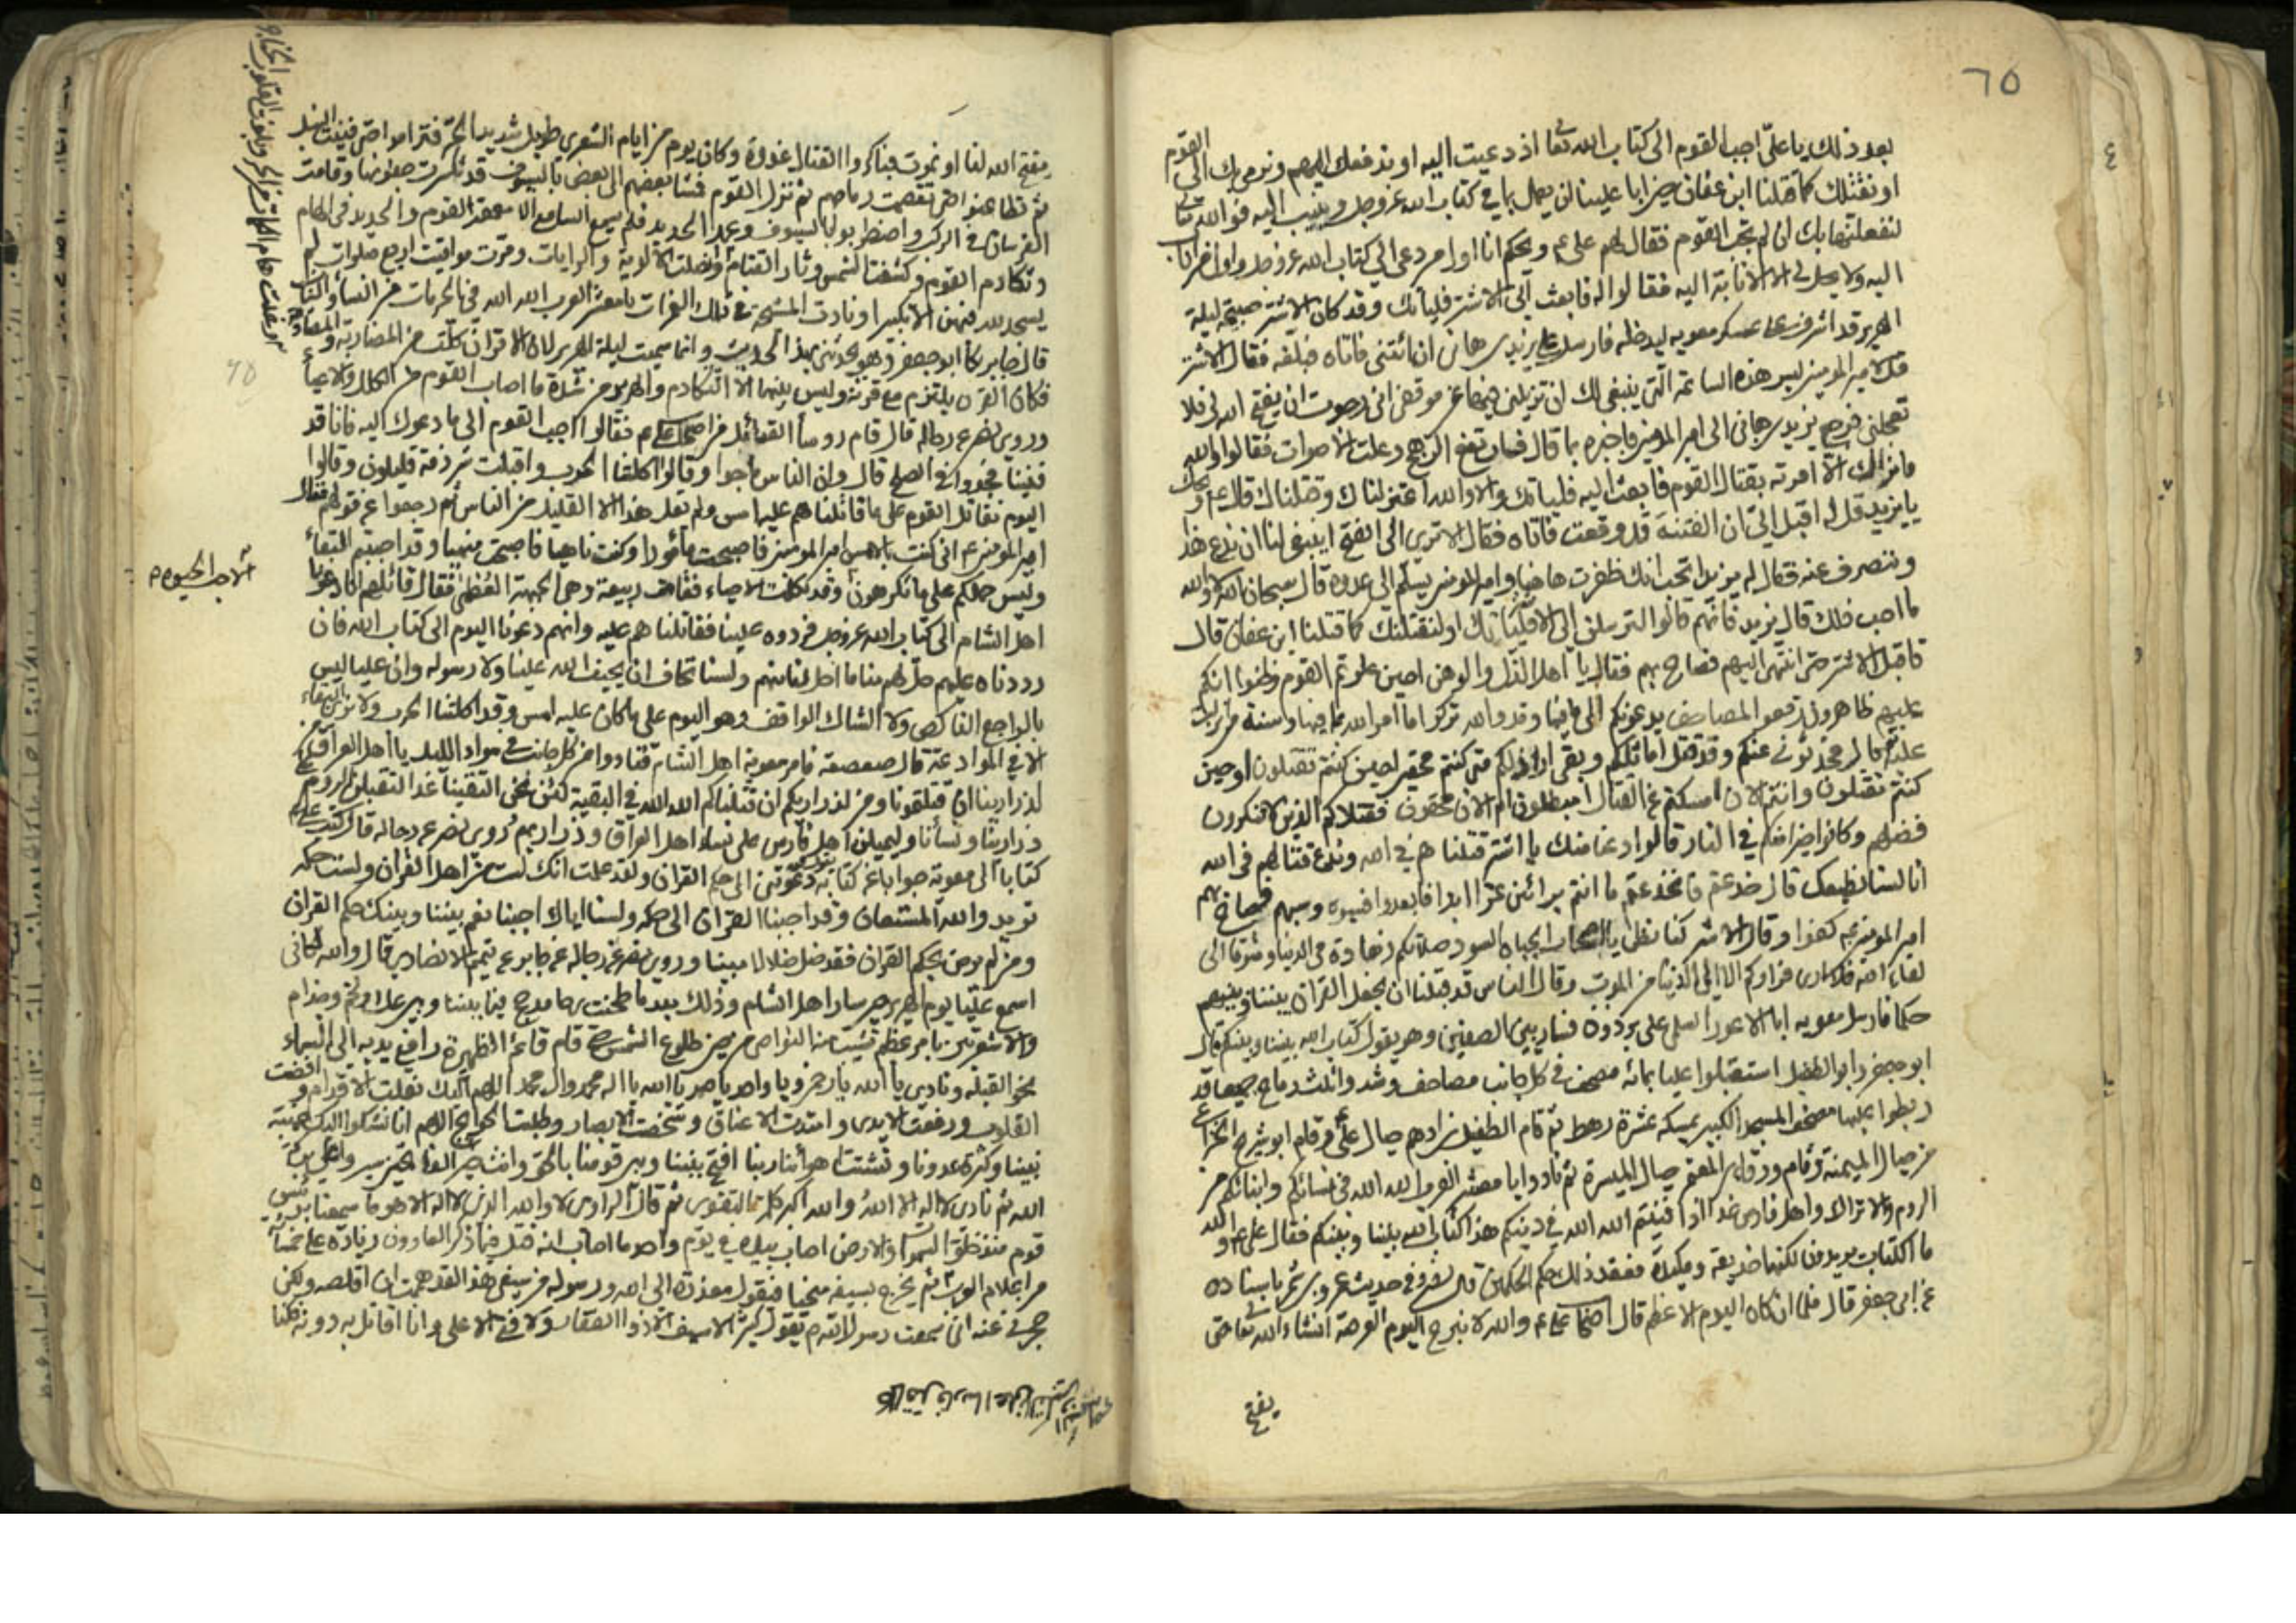 ٦٥
بعد ذلك يا علي اجب القوم الى كتاب الله تعا اذ دعيت اليه او ندفعك اليهم ونرمي بك الى القوم
او نقتلك كما قتلنا ابن عفان حين ابا علينا ان يعمل بما في كتاب الله عز وجل وينيب اليه فو الله
لنفعلنها بك ان لم تجب القوم فقال لهم علي ع ويحكم انا اول من دعى الى كتاب الله عز وجل واول من اناب
اليه ولا يحل لي الا الانابة اليه فقالوا له فابعث الى الاشتر فليأتك وقد كان الاشتر صبيحة ليلة
الهرير قد اشرف على عسكر معويه ليدخله فارسل علي يزيد بن هاني ان ائتني فاتاه فبلغه فقال الاشتر
قل لامير المومنين ليس هذه الساعة التي ينبغي لك ان تزيلني فيها عن موقفي اني رجوت ان يفتح الله لي فلا
تعجلني فرجع يزيد بن هاني الى امير المومنين فاخبره بما قال فما ارتفع الرهج وعلت الاصوات فقالوا والله
ما نراك الا امرته بقتال القوم فابعث اليه فليأتك والا والله اعتزلناك وقتلناك قال ع ويحك
يا يزيد قل له اقبل الي ان الفتنة قد وقعت فاتاه فقال الا ترى الى الفتح اينبغي لنا ان ندع هذا
وننصرف عنه فقال له يزيد اتحب انك ظفرت هاهنا وامير المومنين يسلم الى عدوه قال سبحان الله لا والله
ما احب ذلك قال يزيد فانهم قالوا لترسلن الى الاشتر فليأتك او لنقتلنك كما قتلنا ابن عفان قال
فاقبل الاشتر حتى انتهى اليهم فصاح بهم فقال يا اهل الذل والوهن احين علوتم القوم وظنوا انكم
عليهم ظاهرون رفعوا المصاحف يدعونكم الى ما فيها وقد والله تركوا ما امر الله بها فيها وسنة من انزلت
عليه قال فحدثوني عنكم وقد قتل اماثلكم وبقي اراذلكم متى كنتم محقين احين كنتم تقتلون او حين
كنتم تقتلون وانتم الان امسكتم عن القتال مبطلون ام الان محقون فقتلاكم الذين لا تنكرون
فضلهم وكانوا خيرا منكم في النار قالوا دعنا منك يا اشتر قتلناهم في الله وندع قتالهم في الله
انا لسنا نطيعك قال خدعتم فانخدعتم
امير المومنين ع كفوا وقال الاشتر كنا نظن يا اصحاب الجباه السود صلاتكم زهادة في الدنيا وشوقا الى
لقاء الله فلا ارى فراركم الا الى الدنيا من الموت وقال الناس قد قبلنا ان نجعل القران بيننا وبينهم
حكما فارسل معويه ابا الاعور السلمي على برذون فسار بين الصفين وهو يقول كتاب الله بيننا وبينكم قال
ابو جعفر وابو الطفيل استقبلوا عليا بمائة مصحف في كل جانب مصاحف وشدوا ثلث رماح جميعا قد
ربطوا عليها مصحف المسجد الكبير يمسكه عشرة رهط ثم قام الطفيل بن ادهم حيال علي ع وقام ابو شريح
من حيال الميمنة وقام ورقا بن المعمر حيال الميسرة ثم نادوا يا معشر العرب الله الله في نسائكم وبناتكم من
الروم والاتراك واهل فارس غدا اذا فنيتم الله الله في دينكم هذا كتاب الله بيننا وبينكم فقال علي ع والله
ما الكتاب يريدون لكنها خديعة ومكيدة فعند ذلك حكم الحكمين قال نصر وفي حديث عمرو بن شمر باسناده
عن ابي جعفر قال فلما ان كان اليوم الاعظم قال اصحاب علي ع والله لا نبرح اليوم العرصة انشاء الله تعا حتى
يفتح
يفتح الله لنا او نموت فباكروا القتال غدوة وكان يوم من ايام الشعرى طويل شديد الحر فتراموا حتى فنيت النبل
ثم تطاعنوا حتى تقصفت رماحهم ثم نزل القوم فمشا بعضهم الى بعض بالسيوف قد تكسرت جفونها وقامت
الفرسان في الركب واضطربوا بالسيوف وعمد الحديد فلم يسمع السامع الا تغمغم القوم والحديد في الهام
وتكادم القوم وكسفت الشمس وثار القتام وضلت الالوية والرايات ومرت مواقيت اربع صلوات لم
يسجد لله فيهن الا تكبيرا ونادت المشيخة في تلك الغمرات يا معشر العرب الله الله في الحرمات من النساء والبنات
قال جابر بكا ابو جعفر وهو يحدثني بهذا الحديث وانما سميت ليلة الهرير لان الاقران كلت من المضاربة
فكان القرن يلتزم مع قرنه وليس بينهما الا التكادم والهرير من شدة ما اصاب القوم من الكلال والاعيا
وروى نصر عن رجاله قال قام روسأ القبائل من اصحاب علي ع فقالوا اجب القوم الى ما دعوك اليه فانا قد
فنينا فجدوا في الصلح قال وان الناس ماجوا وقالوا اكلتنا الحرب واقبلت شرذمة قليلون وقالوا
اليوم نقاتل القوم على ما قاتلناهم عليه امس ولم تفعل هذا الا القليل من الناس ثم رجعوا عن قولهم فقال
امير المومنين ع اني كنت بالامس امير المومنين فاصبحت مأمورا وكنت ناهيا فاصبحت منهيا وقد احببتم البقأ
وليس حملكم على ما تكرهون وقد تكلمت الاحياء فقامت ربيعة وهي الجبهة العظمى فقال قائلهم انا دعونا
اهل الشام الى كتاب الله عز وجل فردوه علينا فقاتلناهم عليه وانهم دعونا اليوم الى كتاب الله فان
رددناه عليهم حل لهم منا ما احل لنا منهم ولسنا نخاف ان يحيف الله علينا ولا رسوله وان عليا ليس
بالراجع الناكص ولا الشاك الواقف وهو اليوم على ما كان عليه امس وقد اكلتنا الحرب ولا نرى البقاء
الا في الموادعة قال صعصعة فامر معوية اهل الشام فنادوا من كل جانب في سواد الليل يا اهل العراق من
لذرارينا ان قتلتمونا ومن لذراريكم ان قتلناكم الله الله في البقية لئن نحن التقينا غدا لتقبلن الروم على
ذرارينا ونسأنا وليميلن اهل فارس على نساء اهل العراق وذراريهم وروى نصر عن رجاله قال كتب علي ع
كتابا الى معوية جوابا عن كتابه دعوتني الى حكم القران ولقد علمت انك لست من اهل القران ولست حكمه
تريد والله المستعان وقد اجبنا القران الى حكمه ولسنا اياك اجبنا نعم بيننا وبينك حكم القران
ومن لم يرض بحكم القران فقد ضل ضلالا مبينا وروى نصر عن رجاله عن جابر عن تميم الانصاري قال والله لكاني
اسمع عليا يوم الهرير حين سار اهل الشام وذلك بعد ما طحنت رحا مدحج فيما بيننا وبين عك ولخم وجذام
والاشعرتين بامر عظيم تشيب منه النواصي من حين طلوع الشمس حتى قام قائم الظهيرة رافع يديه الى السماء
نحو القبلة ونادى يا الله يا رحمن ويا واحد يا صمد يا الله يا اله محمد وال محمد اللهم اليك نقلت الاقدام وافضت
القلوب ورفعت الايدي وامتدت الاعناق وشخصت الابصار وطلبت الحوائج اللهم انا نشكوا اليك غيبة
نبينا وكثرة عدونا وتشتت اهوأنا ربنا افتح بيننا وبين قومنا بالحق وانت خير الفاتحين سيروا على بركة
الله ثم نادى لا اله الا الله والله اكبر كلمة التقوى ثم قال الراوي لا والله الذي لا اله الا هو ما سمعنا برئيس
قوم منذ خلق السموات والارض اصاب بيده في يوم واحد ما اصاب انه قتل فيما ذكر العادون زيادة على خمسمأ
من اعلام العرب ثم يخرج بسيفه منحنيا فيقول معذرة الى الله ورسوله من سيفي هذا لقد هممت ان اقلعه ولكن
حجزني عنه اني سمعت رسول الله ص يقول كثيرا لا سيف الا ذو الفقار ولا فتى الا علي وانا اقاتل به دونه